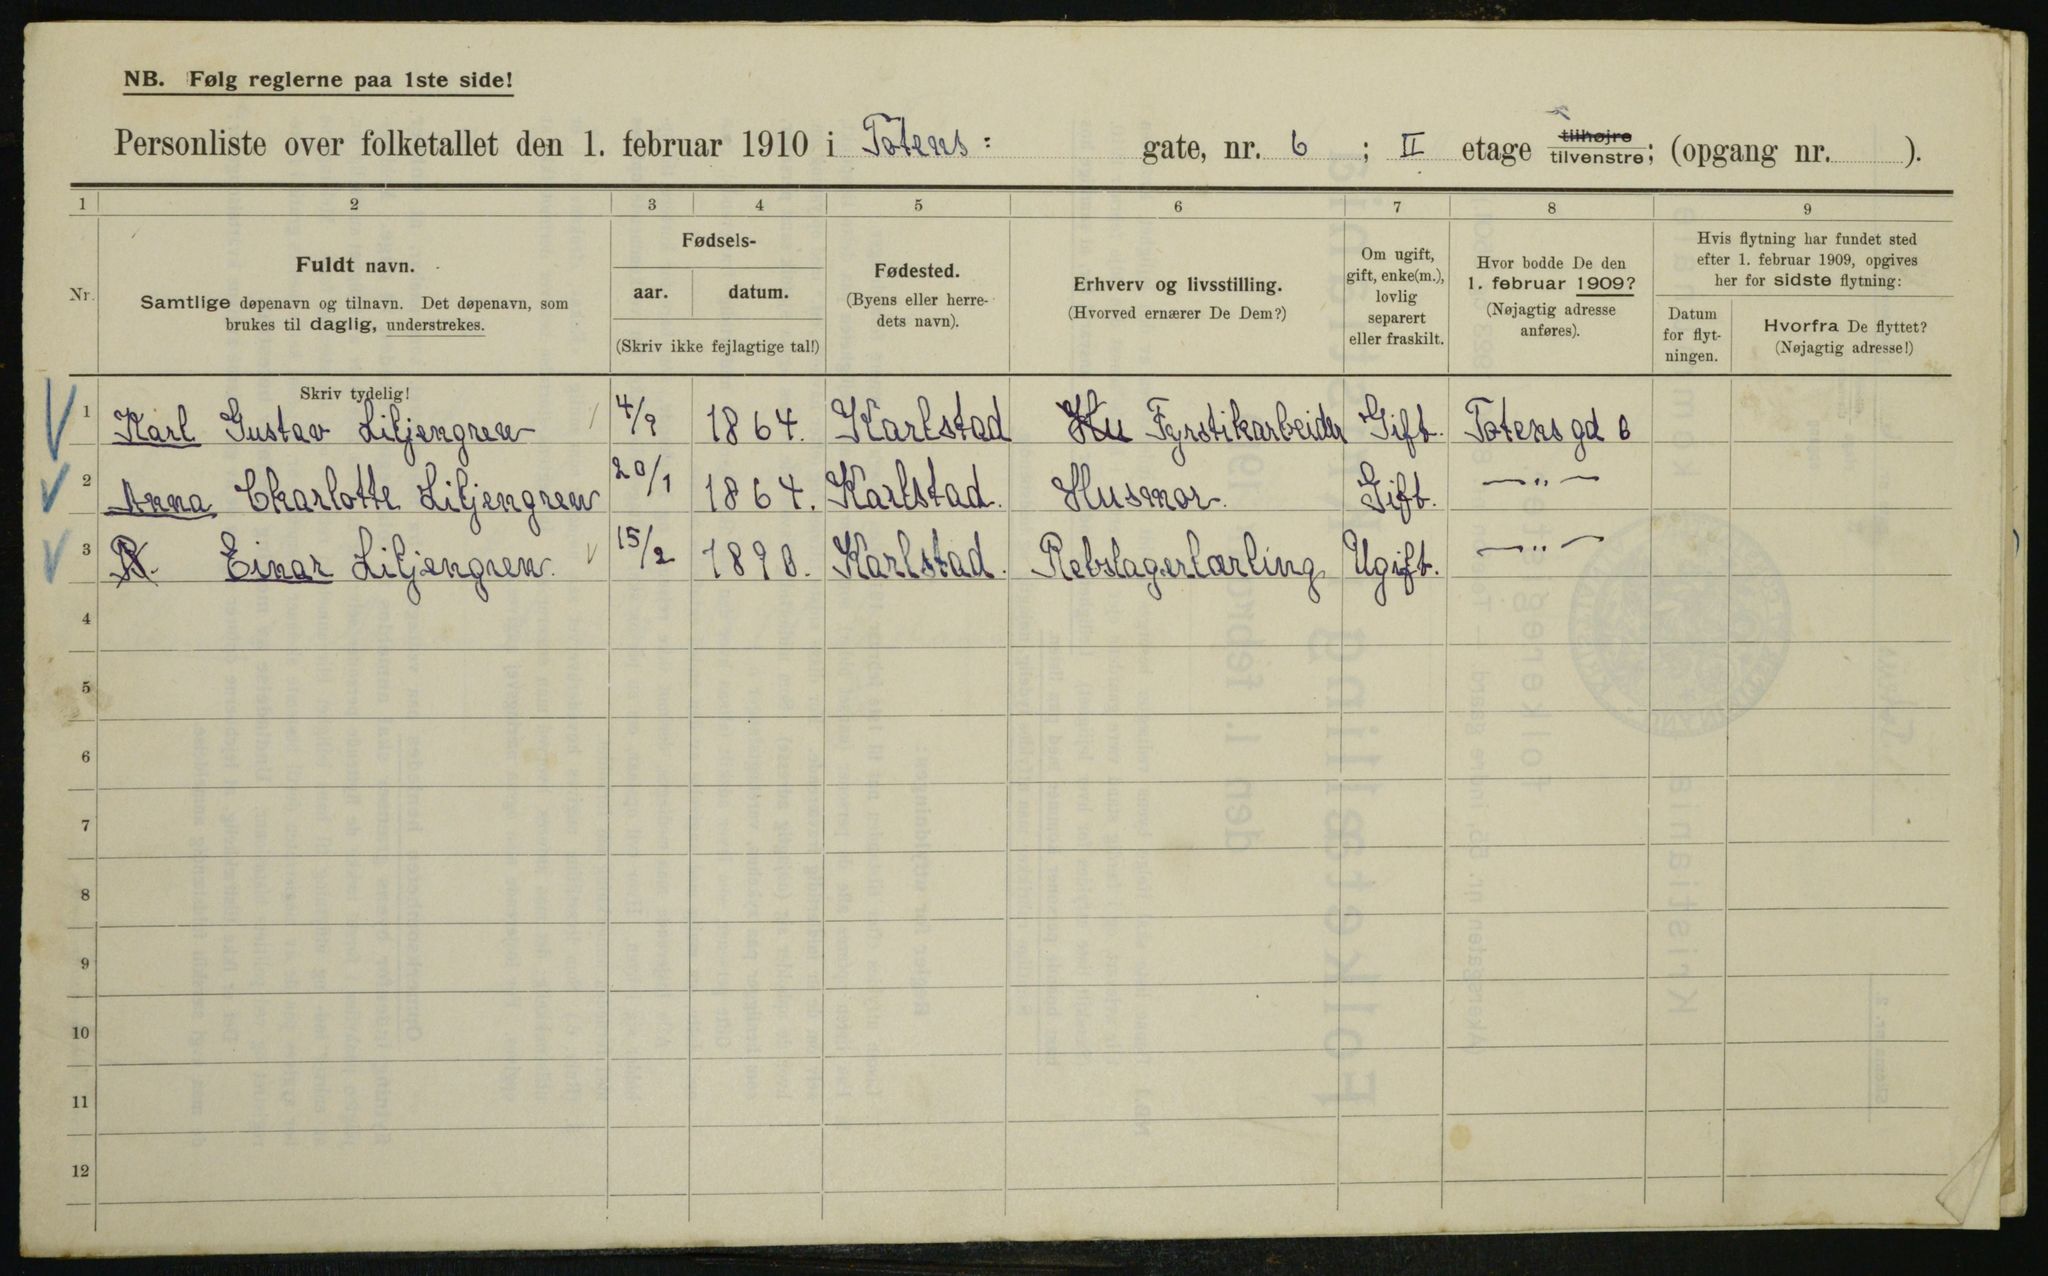 NB. Følg reglerne paa 1ste side!
Personliste over folketallet den 1. februar 1910 i Totens: gate, nr. 6 ; II etage tilhøjre tilvenstre; (opgang nr. ).
1 2 3 4 5 6 7 8 9
Nr. Fuldt navn. Samtlige døpenavn og tilnavn. Det døpenavn, som brukes til daglig, understrekes.
Fødsels-
aar. datum.
(Skriv ikke fejlagtige tal!)
Fødested.
(Byens eller herre-
dets navn).
Erhverv og livsstilling.
(Hvorved ernærer De Dem?)
Om ugift,
gift, enke(m.),
lovlig
separert
eller fraskilt.
Hvor bodde De den
1. februar 1909?
(Nøjagtig adresse
anføres).
Hvis flytning har fundet sted
efter 1. februar 1909, opgives
her for sidste flytning:
Datum
for flyt-
ningen.
Hvorfra De flyttet?
(Nøjagtig adresse!)
Skriv tydelig!
1 Karl Gustav Liljengren 4/9 1864. Karlstad Hu Fyrstikarbeider Gift. Totens gd 6
2 Anna Charlotte Liljengren 20/1 1864. Karlstad. Husmor. Gift. —„—
3 Einar Liljengren. 15/2 1890. Karlstad. Rebslagerlærling Ugift. —„—
4
5
6
7
8
9
10
11
12